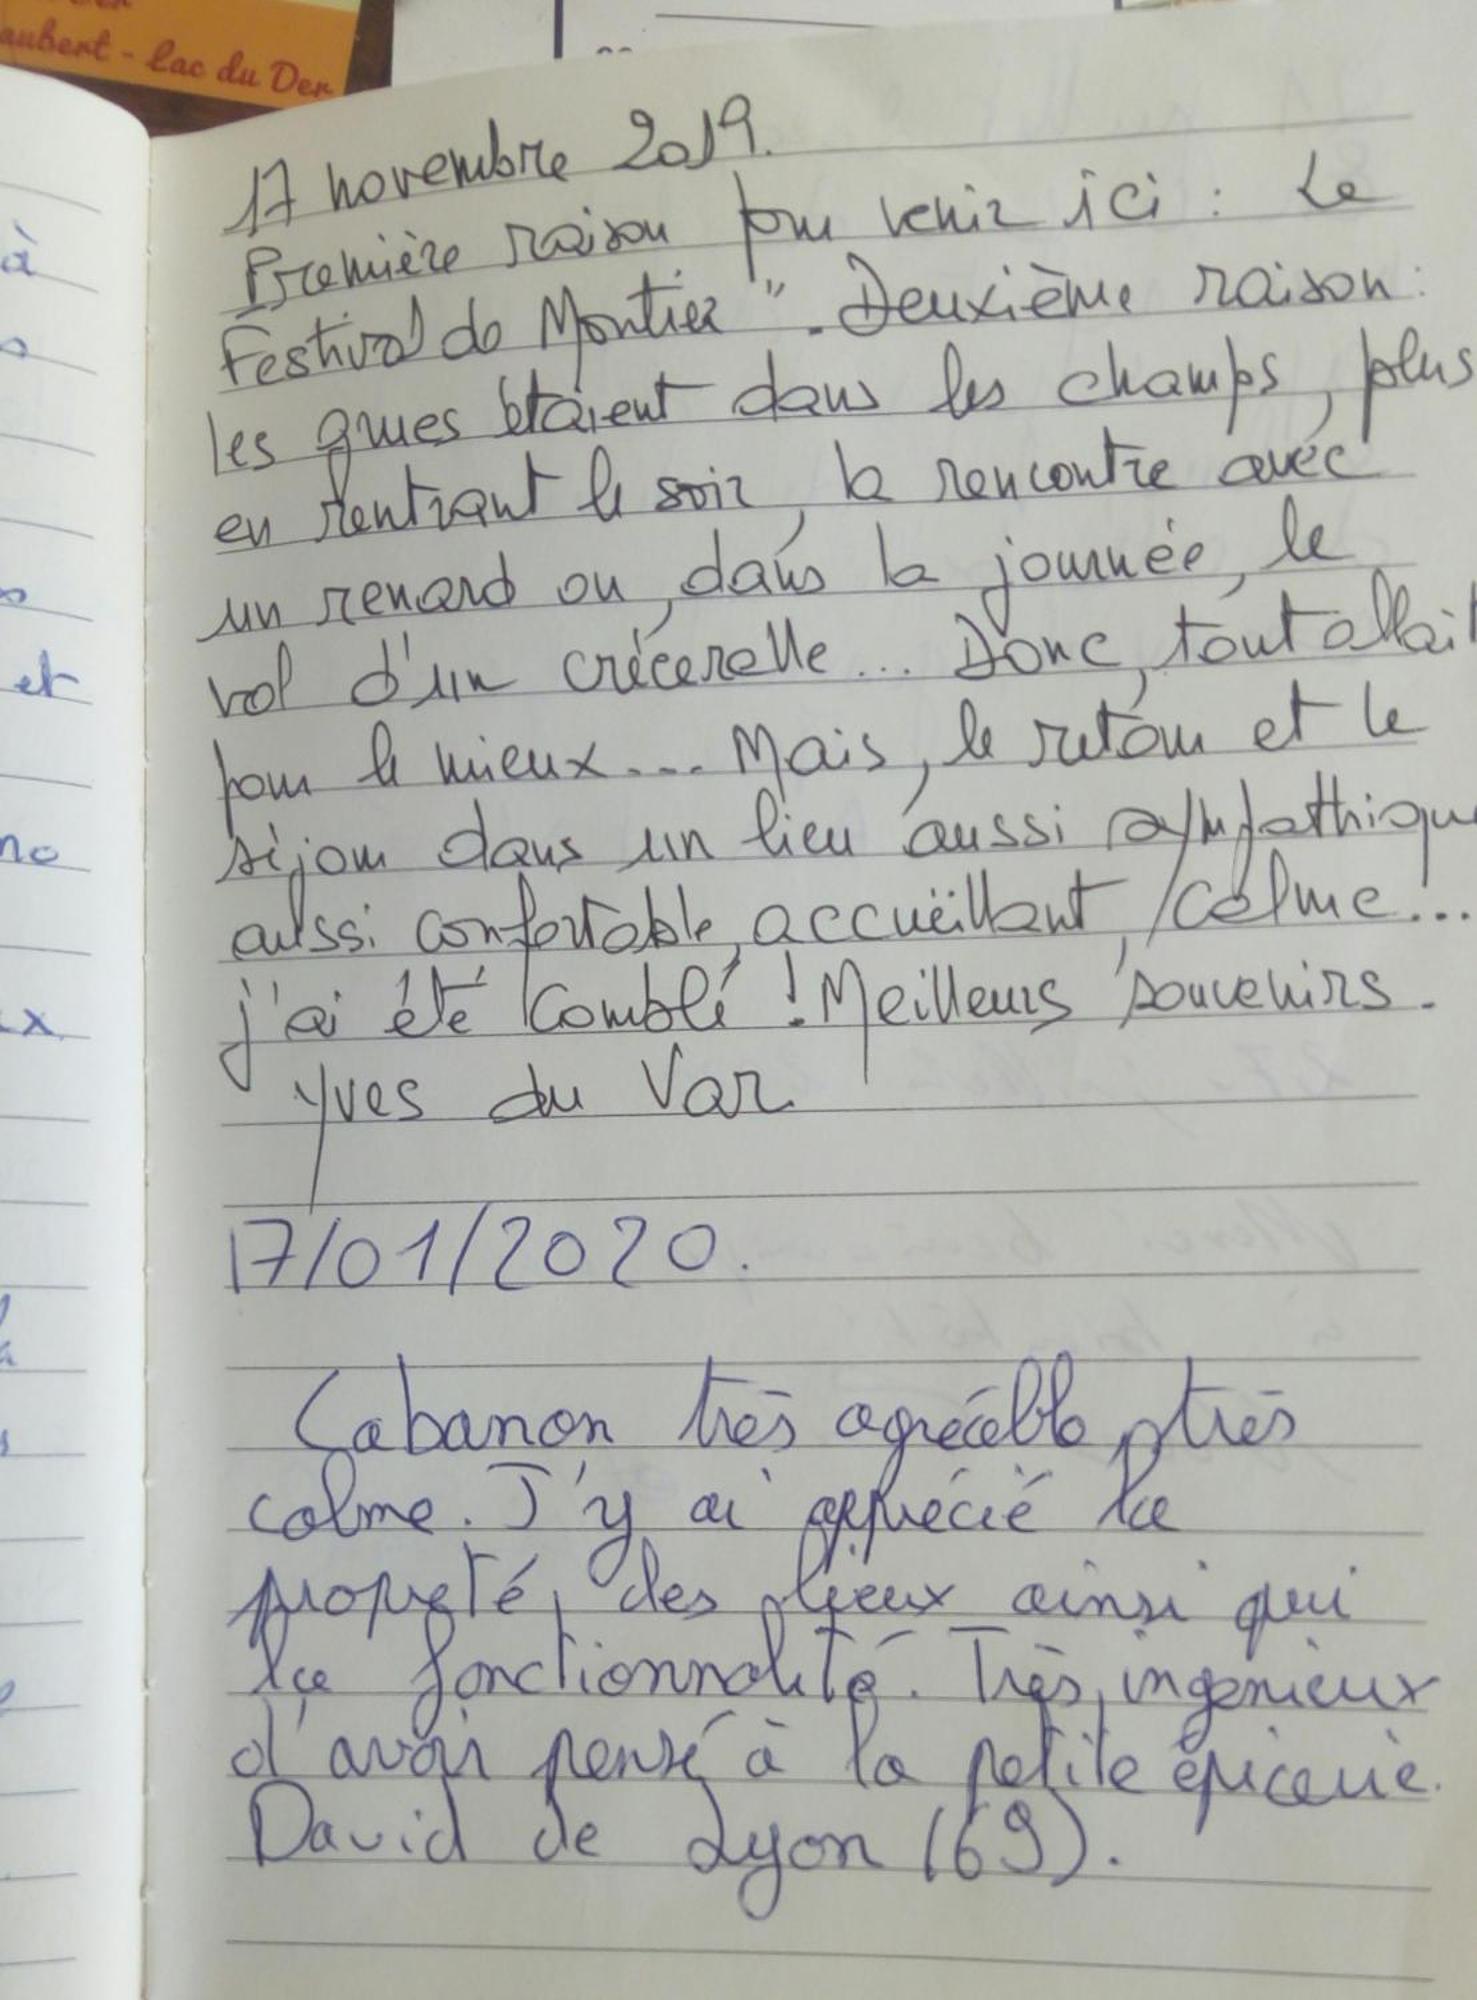 aubert - Lac du Der
17 novembre 2019.
Première raison pour venir ici : Le
Festival de Montier". Deuxième raison :
les grues étaient dans les champs, plus
en rentrant le soir, la rencontre avec
un renard ou, dans la journée, le
vol d'un crécerelle... Donc, tout allait
pour le mieux... Mais, le retour et le
séjour dans un lieu aussi sympathique
aussi confortable, accueillant, calme...
j'ai été comblé ! Meilleurs souvenirs.
Yves du Var
17/01/2020.
Cabanon très agréable, très
calme. J'y ai apprécié la
propreté, des lieux ainsi qui
la fonctionnalité. Très, ingenieux
d'avoir pensé à la petite épicerie.
David de Lyon (69).
à
et
no
x